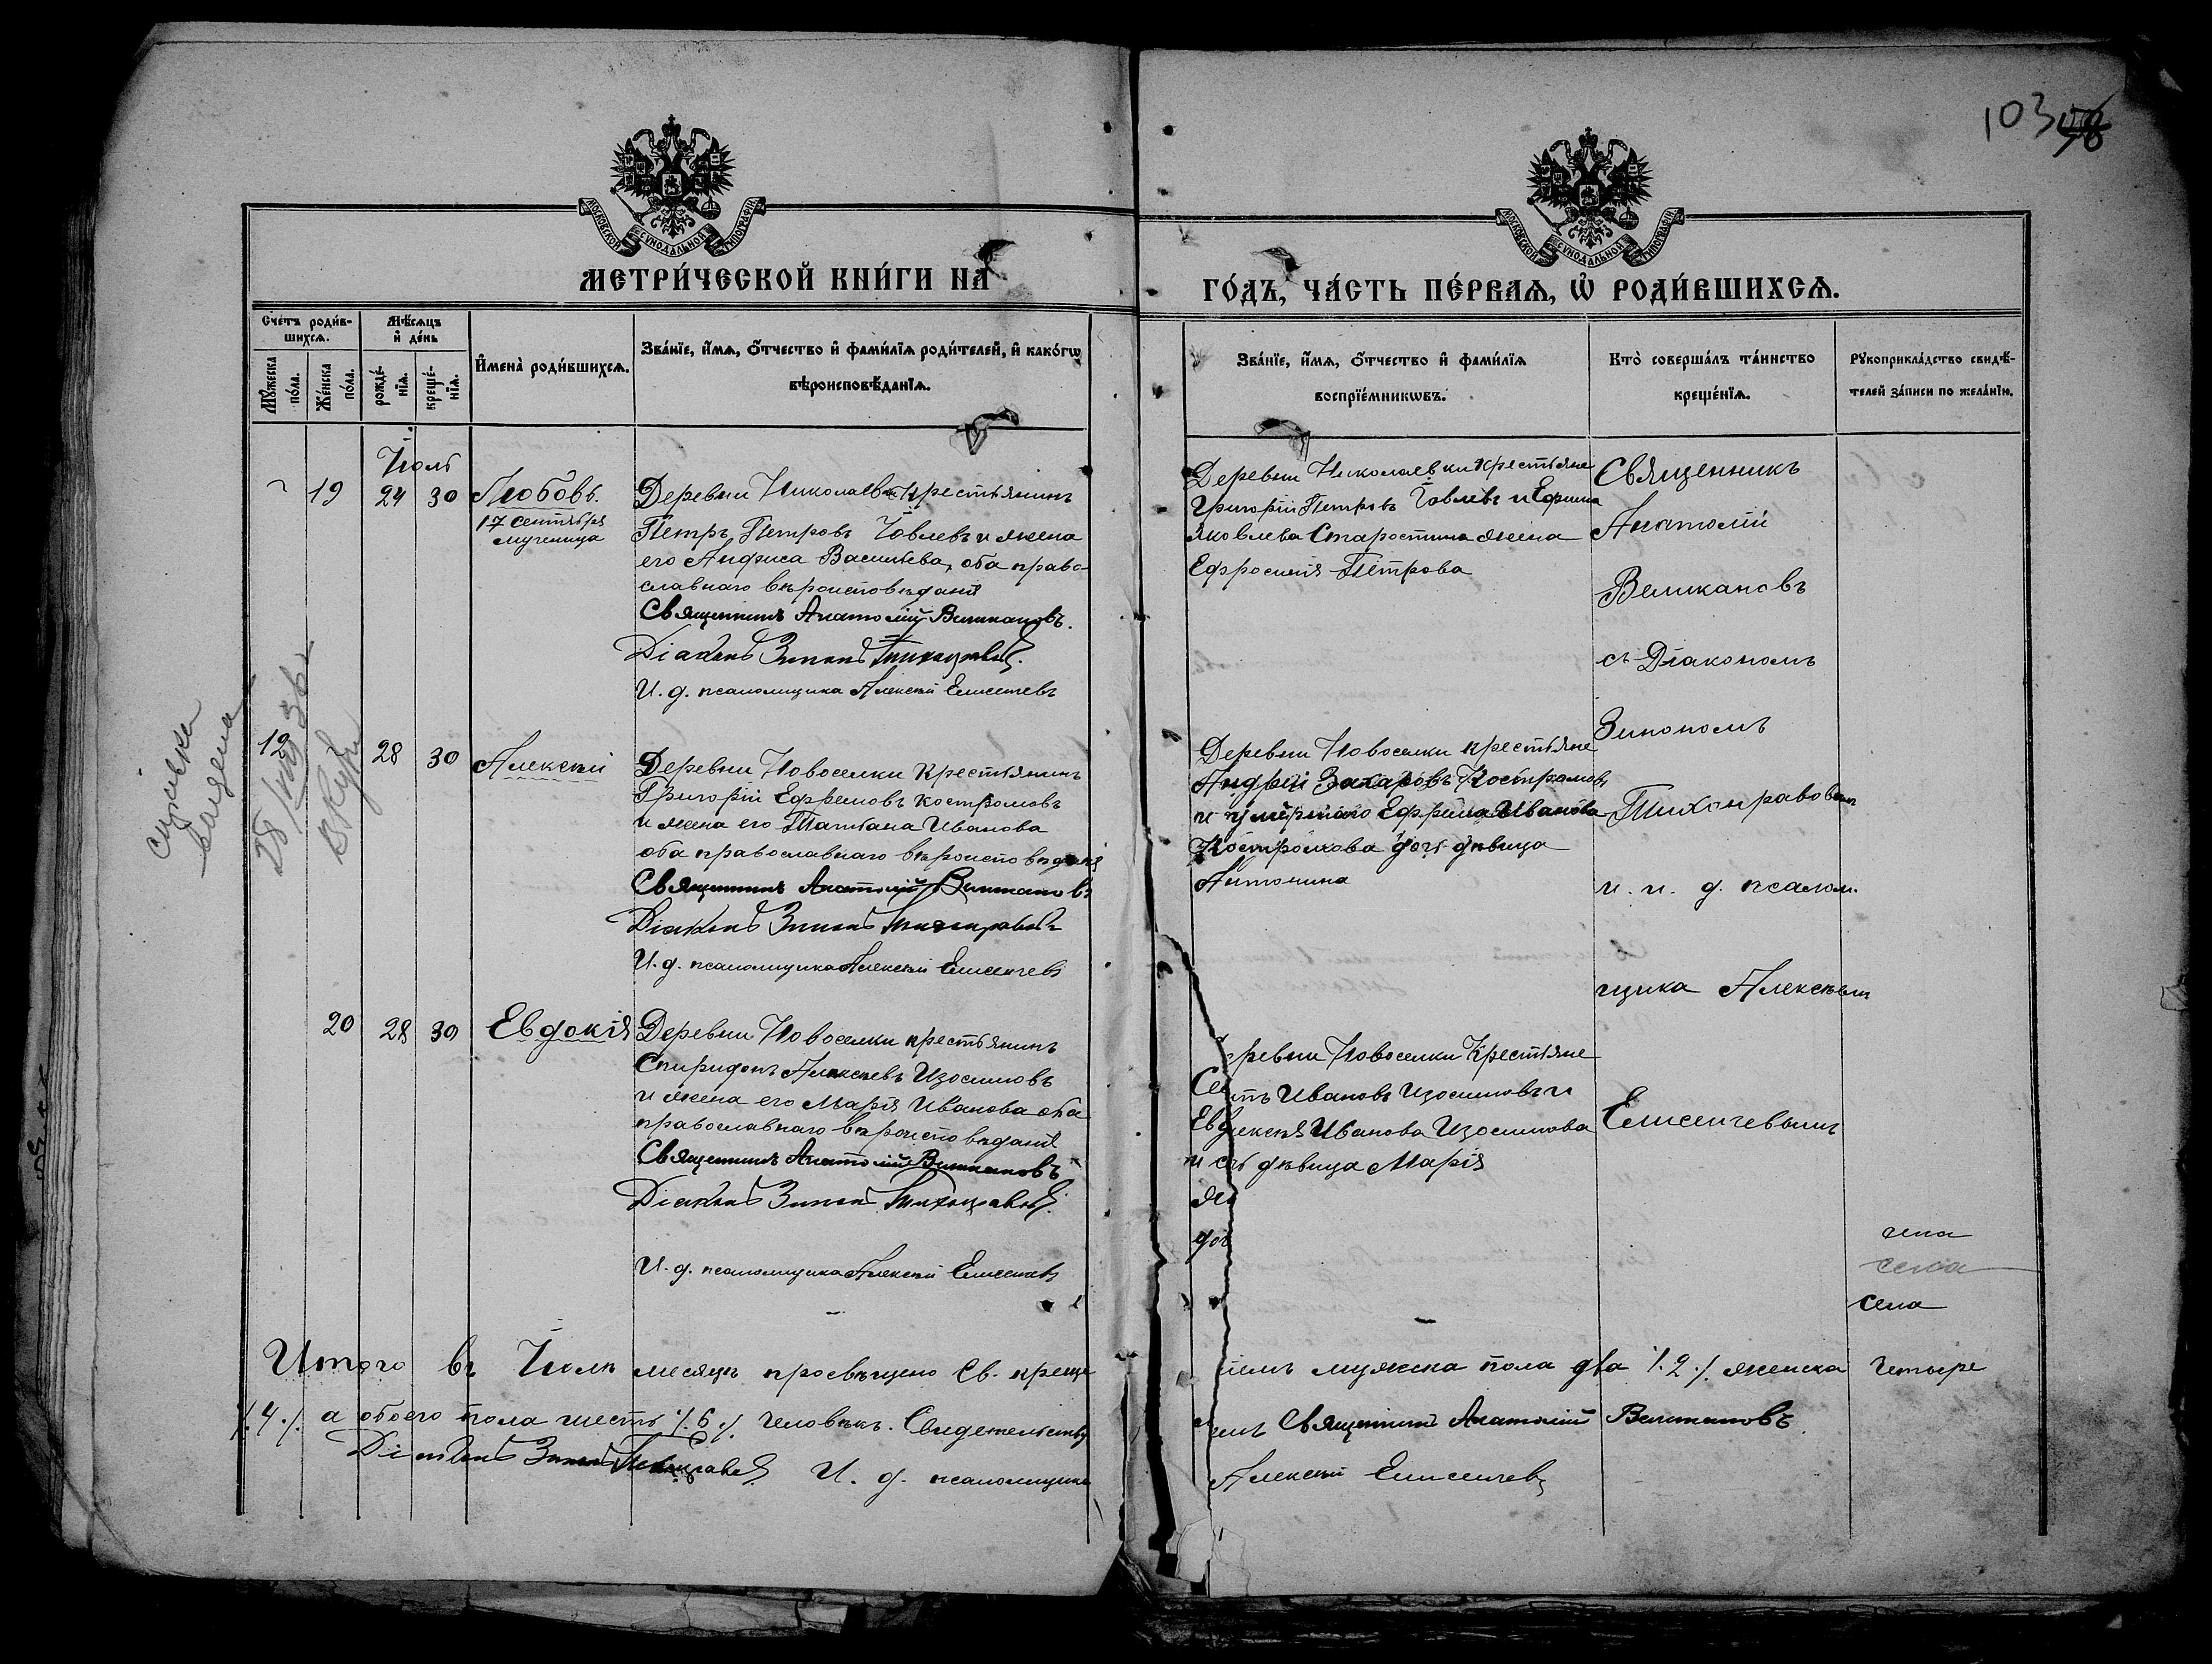 103
МЕТРИ́ЧЕСКОЙ КНИ́ГИ НА
ГО́ДЪ, ЧА́СТЬ ПЕ́РВАѦ, Ѡ҆ РОДИ́ВШИХСѦ.
МОСКОВСКОЙ СѴНОДАЛЬНОЙ ТИПОГРАФІИ
МОСКОВСКОЙ СѴНОДАЛЬНОЙ ТИПОГРАФІИ
Сче́тъ роди́в-
шихсѧ.
Мꙋ́жеска по́ла.
Же́нска по́ла.
Мѣ́сѧцъ
и҆ де́нь
рожде́-
нїѧ.
креще́-
нїѧ.
И҆мена̀ роди́вшихсѧ.
Зва́нїе, и҆́мѧ, ѻ҆́тчество и҆ фами́лїѧ роди́телей, и҆ како́гѡ
вѣроисповѣ́данїѧ.
Зва́нїе, и҆́мѧ, ѻ҆́тчество и҆ фами́лїѧ
воспрїе́мникѡвъ.
Кто̀ соверша́лъ та́инство
креще́нїѧ.
Рꙋкоприкла́дство свидѣ́-
телей за́писи по жела́нїю.
Іюль
19 24 30 Любовь.
17 сентября
мученица
Деревни Николаевки крестьянинъ
Петръ Петровъ Іовлевъ и жена
его Анфиса Васильева, оба право-
славнаго вѣроисповѣданія
Священникъ Анатолій Великановъ.
Діаконъ Зинонъ Тихонравовъ.
И. д. псаломщика Алексѣй Елисеичевъ
Деревни Николаевки крестьяне
Григорій Петровъ Іовлевъ и Ефима
Яковлева Старостина жена
Ефросинія Петрова
Священникъ
Анатолій
Великановъ
съ Діакономъ
Зинономъ
Тихонравовым
и и. д. псалом.
щика Алексѣем
Елисеичевымъ
12 28 30 Алексѣй
Деревни Новоселки крестьянинъ
Григорій Ефремовъ Костромовъ
и жена его Татьяна Иванова
оба православнаго вѣроисповѣданія
Священникъ Анатолій Великановъ
Діаконъ Зинонъ Тихонравовъ
И. д. псаломщика Алексѣй Елисеичевъ
Деревни Новоселки крестьяне
Андрей Захаровъ Костромовъ
и умершаго Ефрема Иванова
Костромова дочь дѣвица
Антонина
20 28 30 Евдокія
Деревни Новоселки крестьянинъ
Спиридонъ Алексѣевъ Изосимовъ
и жена его Марія Иванова оба
православнаго вѣроисповѣданія
Священникъ Анатолій Великановъ
Діаконъ Зинонъ Тихонравовъ.
И. д. псаломщика Алексѣй Елисеичевъ
ревни Новоселки Крестьяне
Ивановъ Изосимовъ и
Иванова Изосимова
дѣвица Марія
села
Итого въ Іюлѣ месяцѣ просвѣщено Св. креще
ніемъ мужска пола два ./.2./. женска четыре
./.4./. а обоего пола шесть ./.6./. человѣкъ. Свидетельству
емъ Священникъ Анатолій Великановъ.
Діаконъ Зинонъ Тихонравовъ И. д. псаломщика
Алексѣй Елисеичевъ